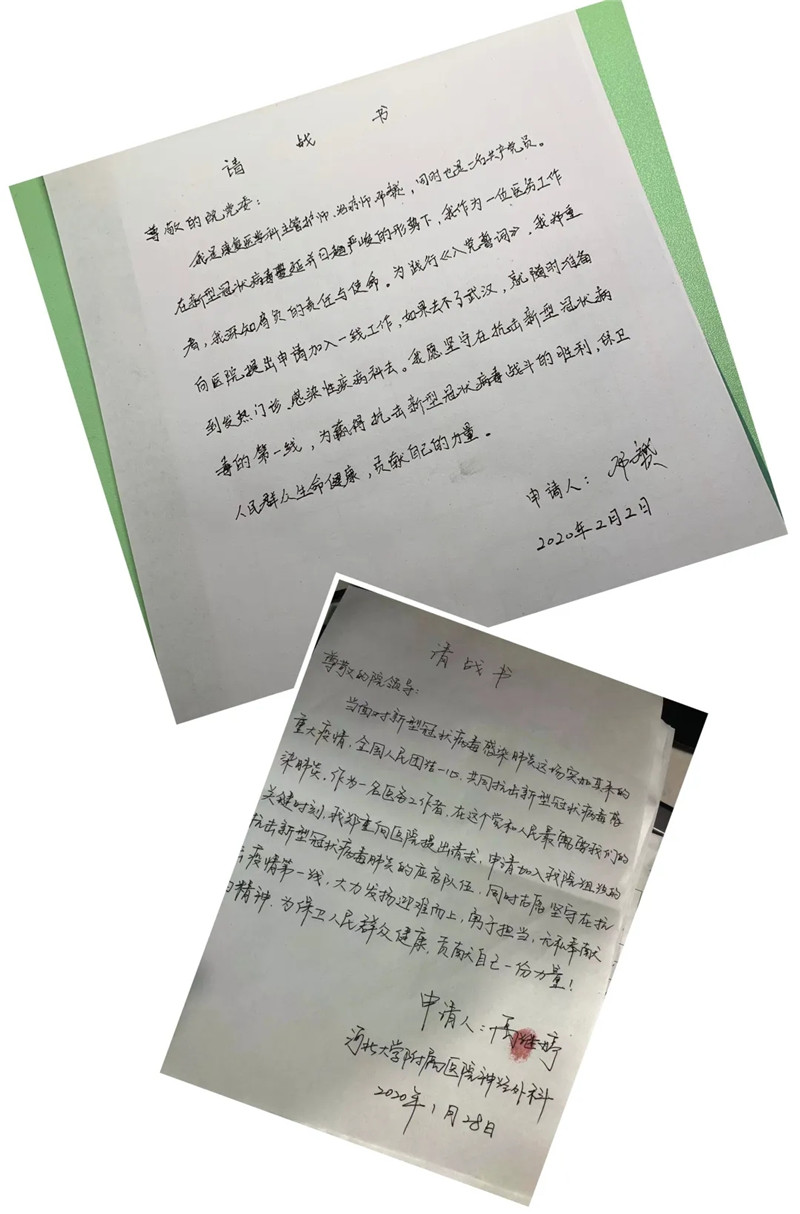 请 战 书
尊敬的院党委：
我是康复医学科主管护师、治疗师邓 ，同时也是一名共产党员。
在新型冠状病毒蔓延并日趋严峻的形势下，我作为一位医务工作
者，我深知肩负的责任与使命。为践行《入党誓词》，我郑重
向医院提出申请加入一线工作，如果去不了武汉，就随时准备
到发热门诊、感染性疾病科去。我愿坚守在抗击新型冠状病
毒的第一线，为赢得抗击新型冠状病毒战斗的胜利，保卫
人民群众生命健康，贡献自己的力量。
申请人：邓
2020年2月2日
请战书
尊敬的院领导：
当面对新型冠状病毒感染肺炎这场突如其来的
重大疫情，全国人民团结一心，共同抗击新型冠状病毒感
染肺炎。作为一名医务工作者，在这个党和人民最需要我们的
关键时刻，我郑重向医院提出请求，申请加入我院组织的
抗击新型冠状病毒肺炎的应急队伍，同时 坚守在抗
击疫情第一线，大力发扬迎难而上，勇于担当，无私奉献
的精神，为保卫人民群众健康，贡献自己一份力量！
申请人：高 婷
河北大学附属医院神经外科
2020年1月28日